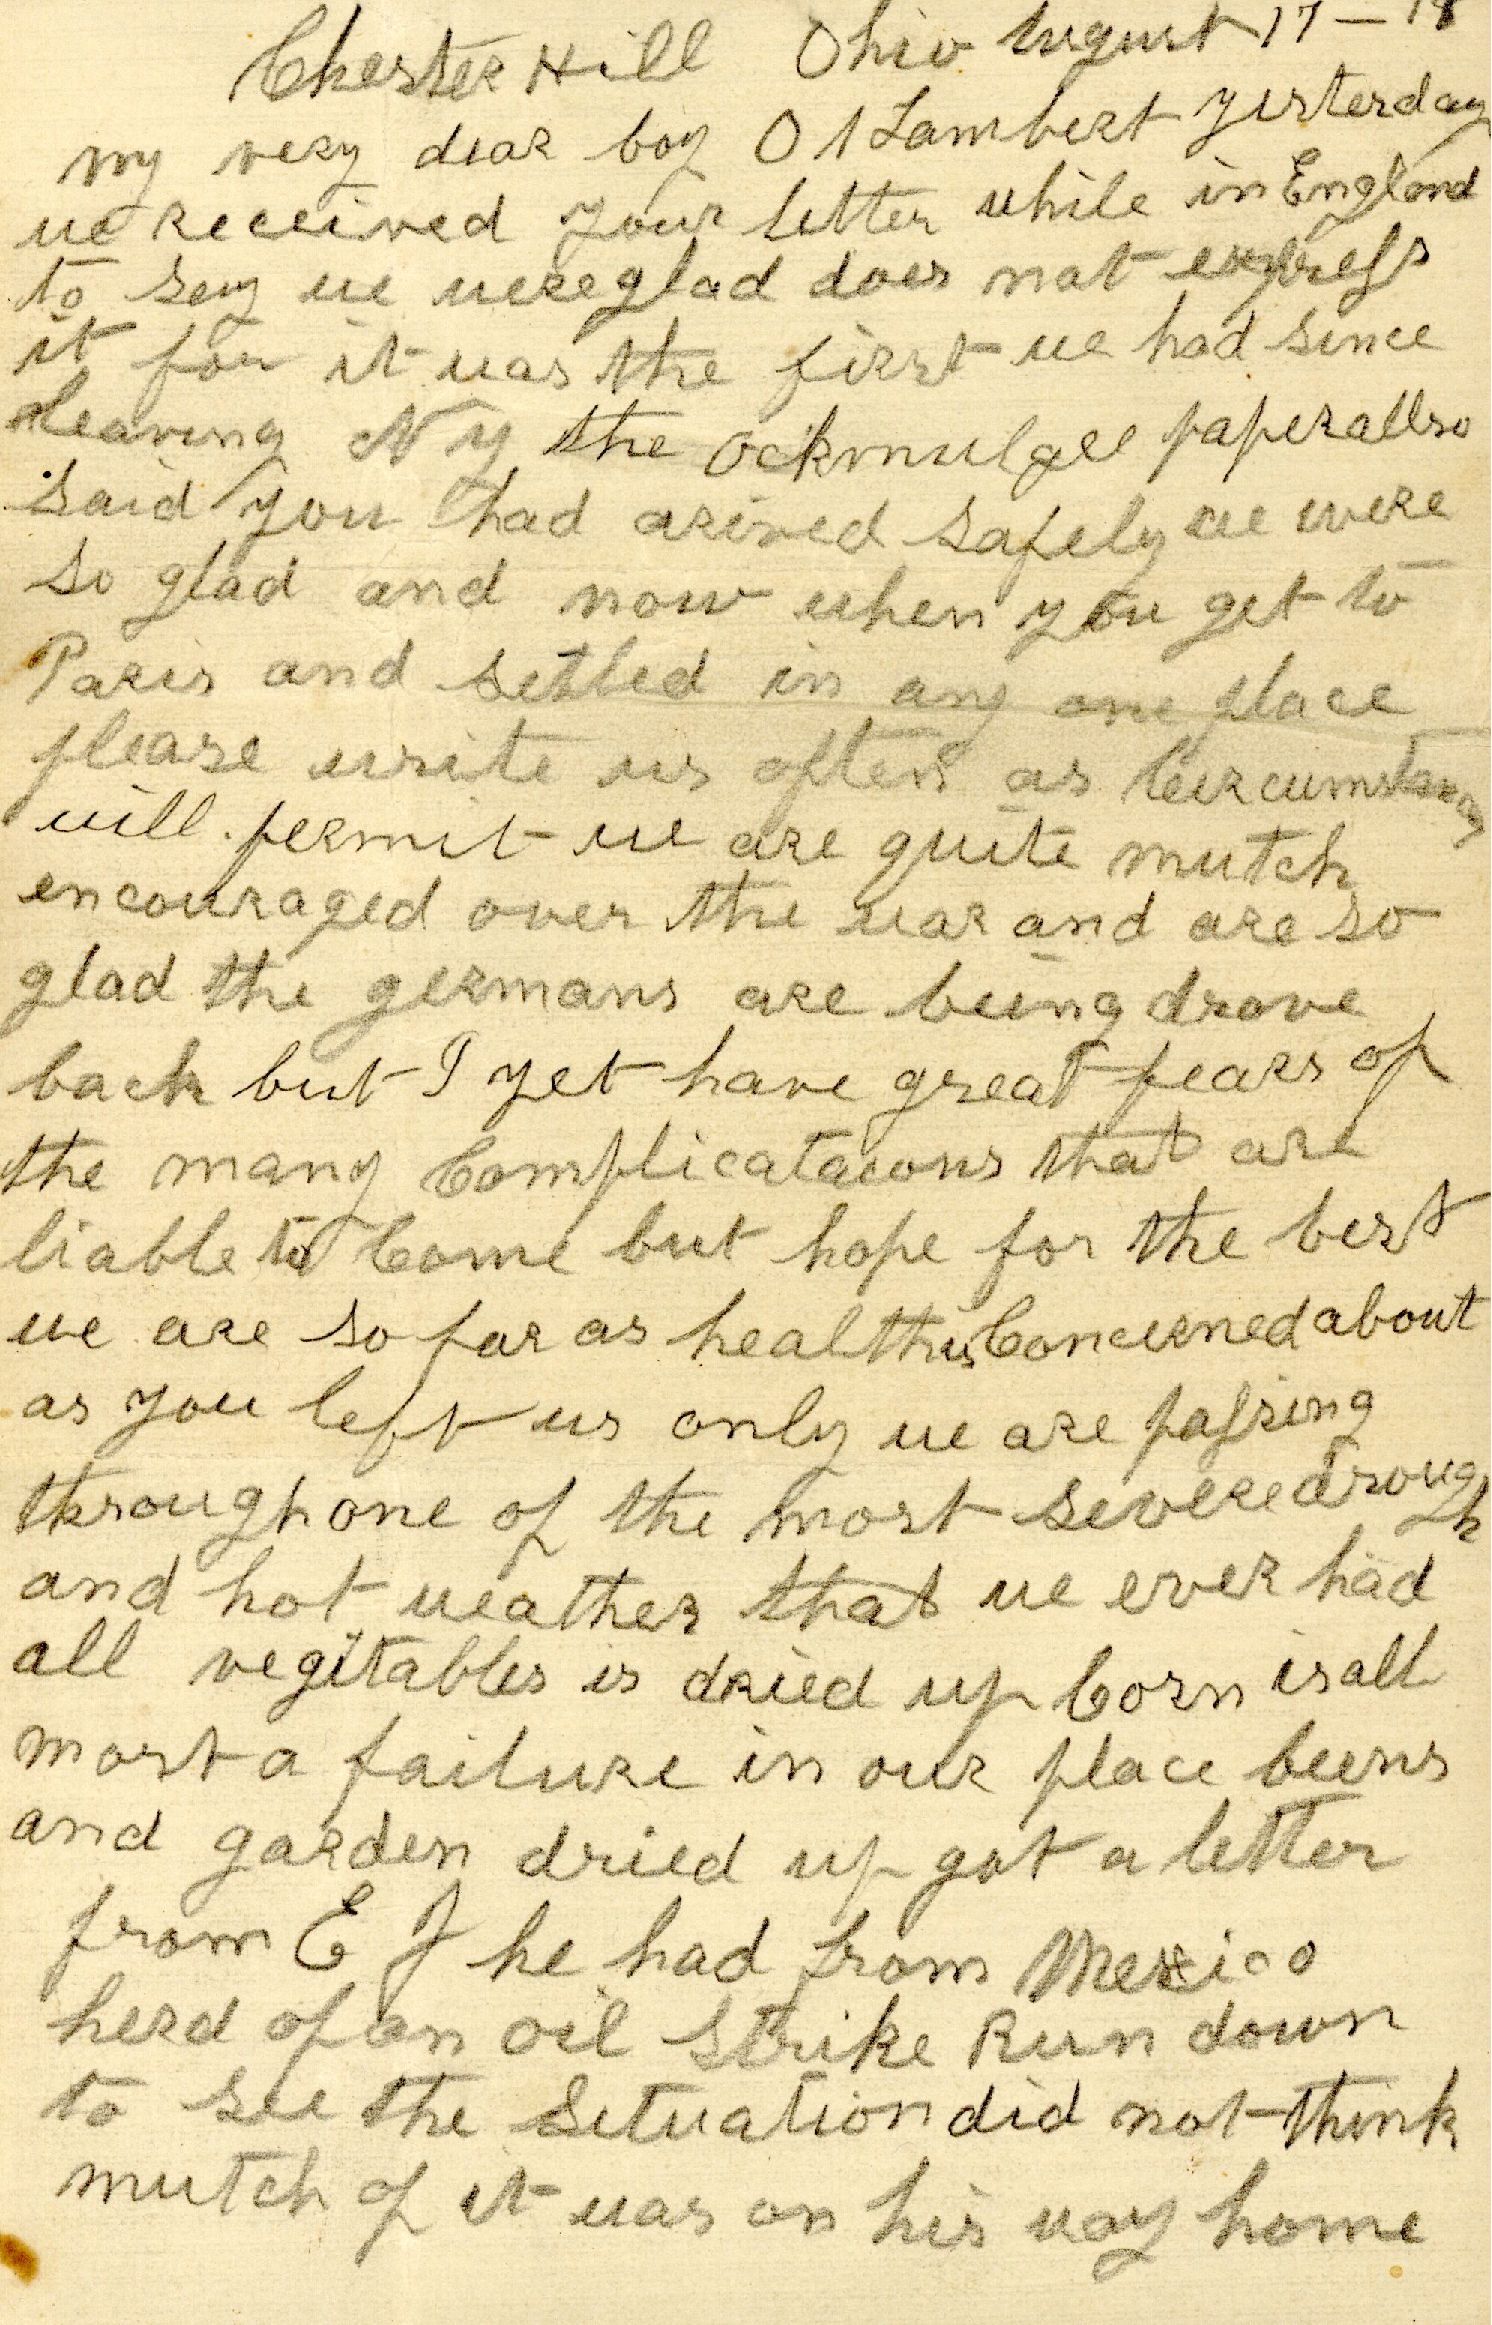 Chester Hill Ohio August 17 - 18
my very dear boy O A Lambert yesterday
we received your letter while in England
to sey we were glad does not express
it for it was the first we had since
leaving N y the Ockmulgee paper allso
said you had arived safely we were
so glad and now when you get to
Paris and setled in any one place
please write us often as Circumstances
will permit we are quite mutch
encouraged over the war and are so
glad the germans are being drove
back but I yet have great fears of
the many Complicataions that are
liable to Come but hope for the best
we are so far as health is Concerned about
as you left us only we are passing
through one of the most severe drough
and hot weather that we ever had
all vegitables is dried up Corn is all
most a failure in our place beens
and garden dried up got a letter
from E J he had from Mexico
herd of an oil strike Run down
to see the Situation did not think
mutch of it was on his way home